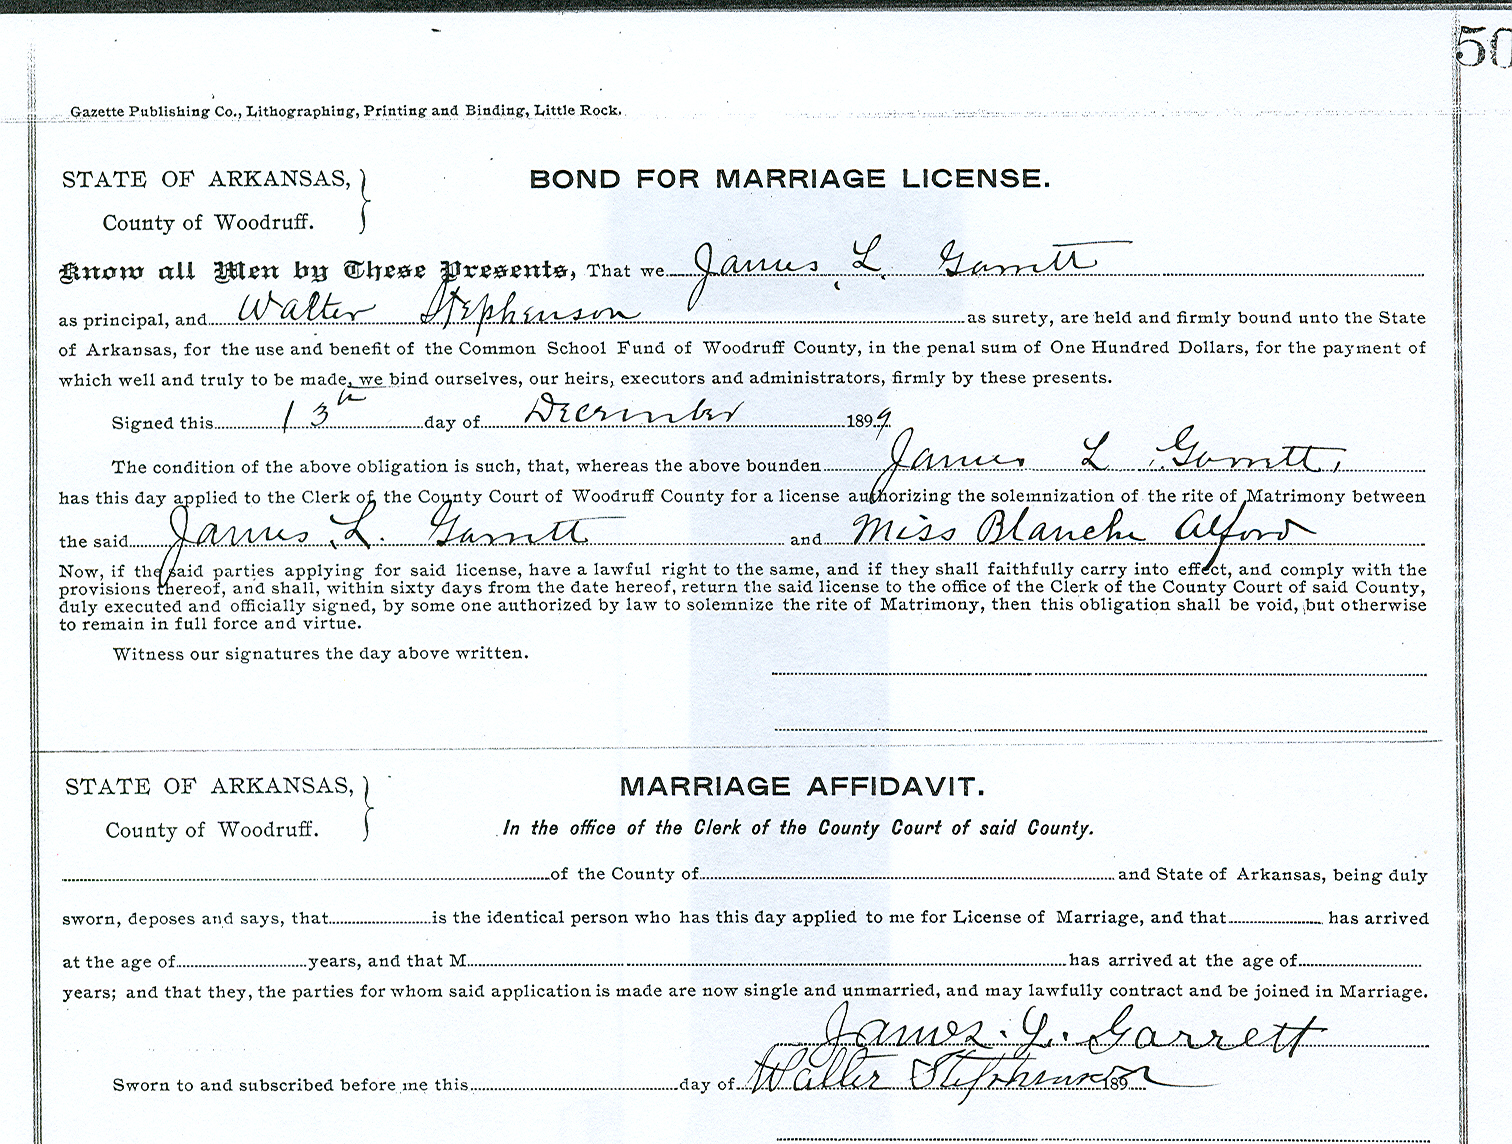 50
Gazette Publishing Co., Lithographing, Printing and Binding, Little Rock.
STATE OF ARKANSAS,
County of Woodruff.
BOND FOR MARRIAGE LICENSE.
Know all Men by These Presents, That we James L. Garrett
as principal, and Walter Stephenson as surety, are held and firmly bound unto the State
of Arkansas, for the use and benefit of the Common School Fund of Woodruff County, in the penal sum of One Hundred Dollars, for the payment of
which well and truly to be made, we bind ourselves, our heirs, executors and administrators, firmly by these presents.
Signed this 13th day of December 1899.
The condition of the above obligation is such, that, whereas the above bounden James L Garrett,
has this day applied to the Clerk of the County Court of Woodruff County for a license authorizing the solemnization of the rite of Matrimony between
the said James L. Garrett and Miss Blanche Alford
Now, if the said parties applying for said license, have a lawful right to the same, and if they shall faithfully carry into effect, and comply with the
provisions thereof, and shall, within sixty days from the date hereof, return the said license to the office of the Clerk of the County Court of said County,
duly executed and officially signed, by some one authorized by law to solemnize the rite of Matrimony, then this obligation shall be void, but otherwise
to remain in full force and virtue.
Witness our signatures the day above written.
STATE OF ARKANSAS,
County of Woodruff.
MARRIAGE AFFIDAVIT.
In the office of the Clerk of the County Court of said County.
of the County of and State of Arkansas, being duly
sworn, deposes and says, that is the identical person who has this day applied to me for License of Marriage, and that has arrived
at the age of years, and that M has arrived at the age of
years; and that they, the parties for whom said application is made are now single and unmarried, and may lawfully contract and be joined in Marriage.
James. L. Garrett
Walter Stephenson
Sworn to and subscribed before me this day of 189